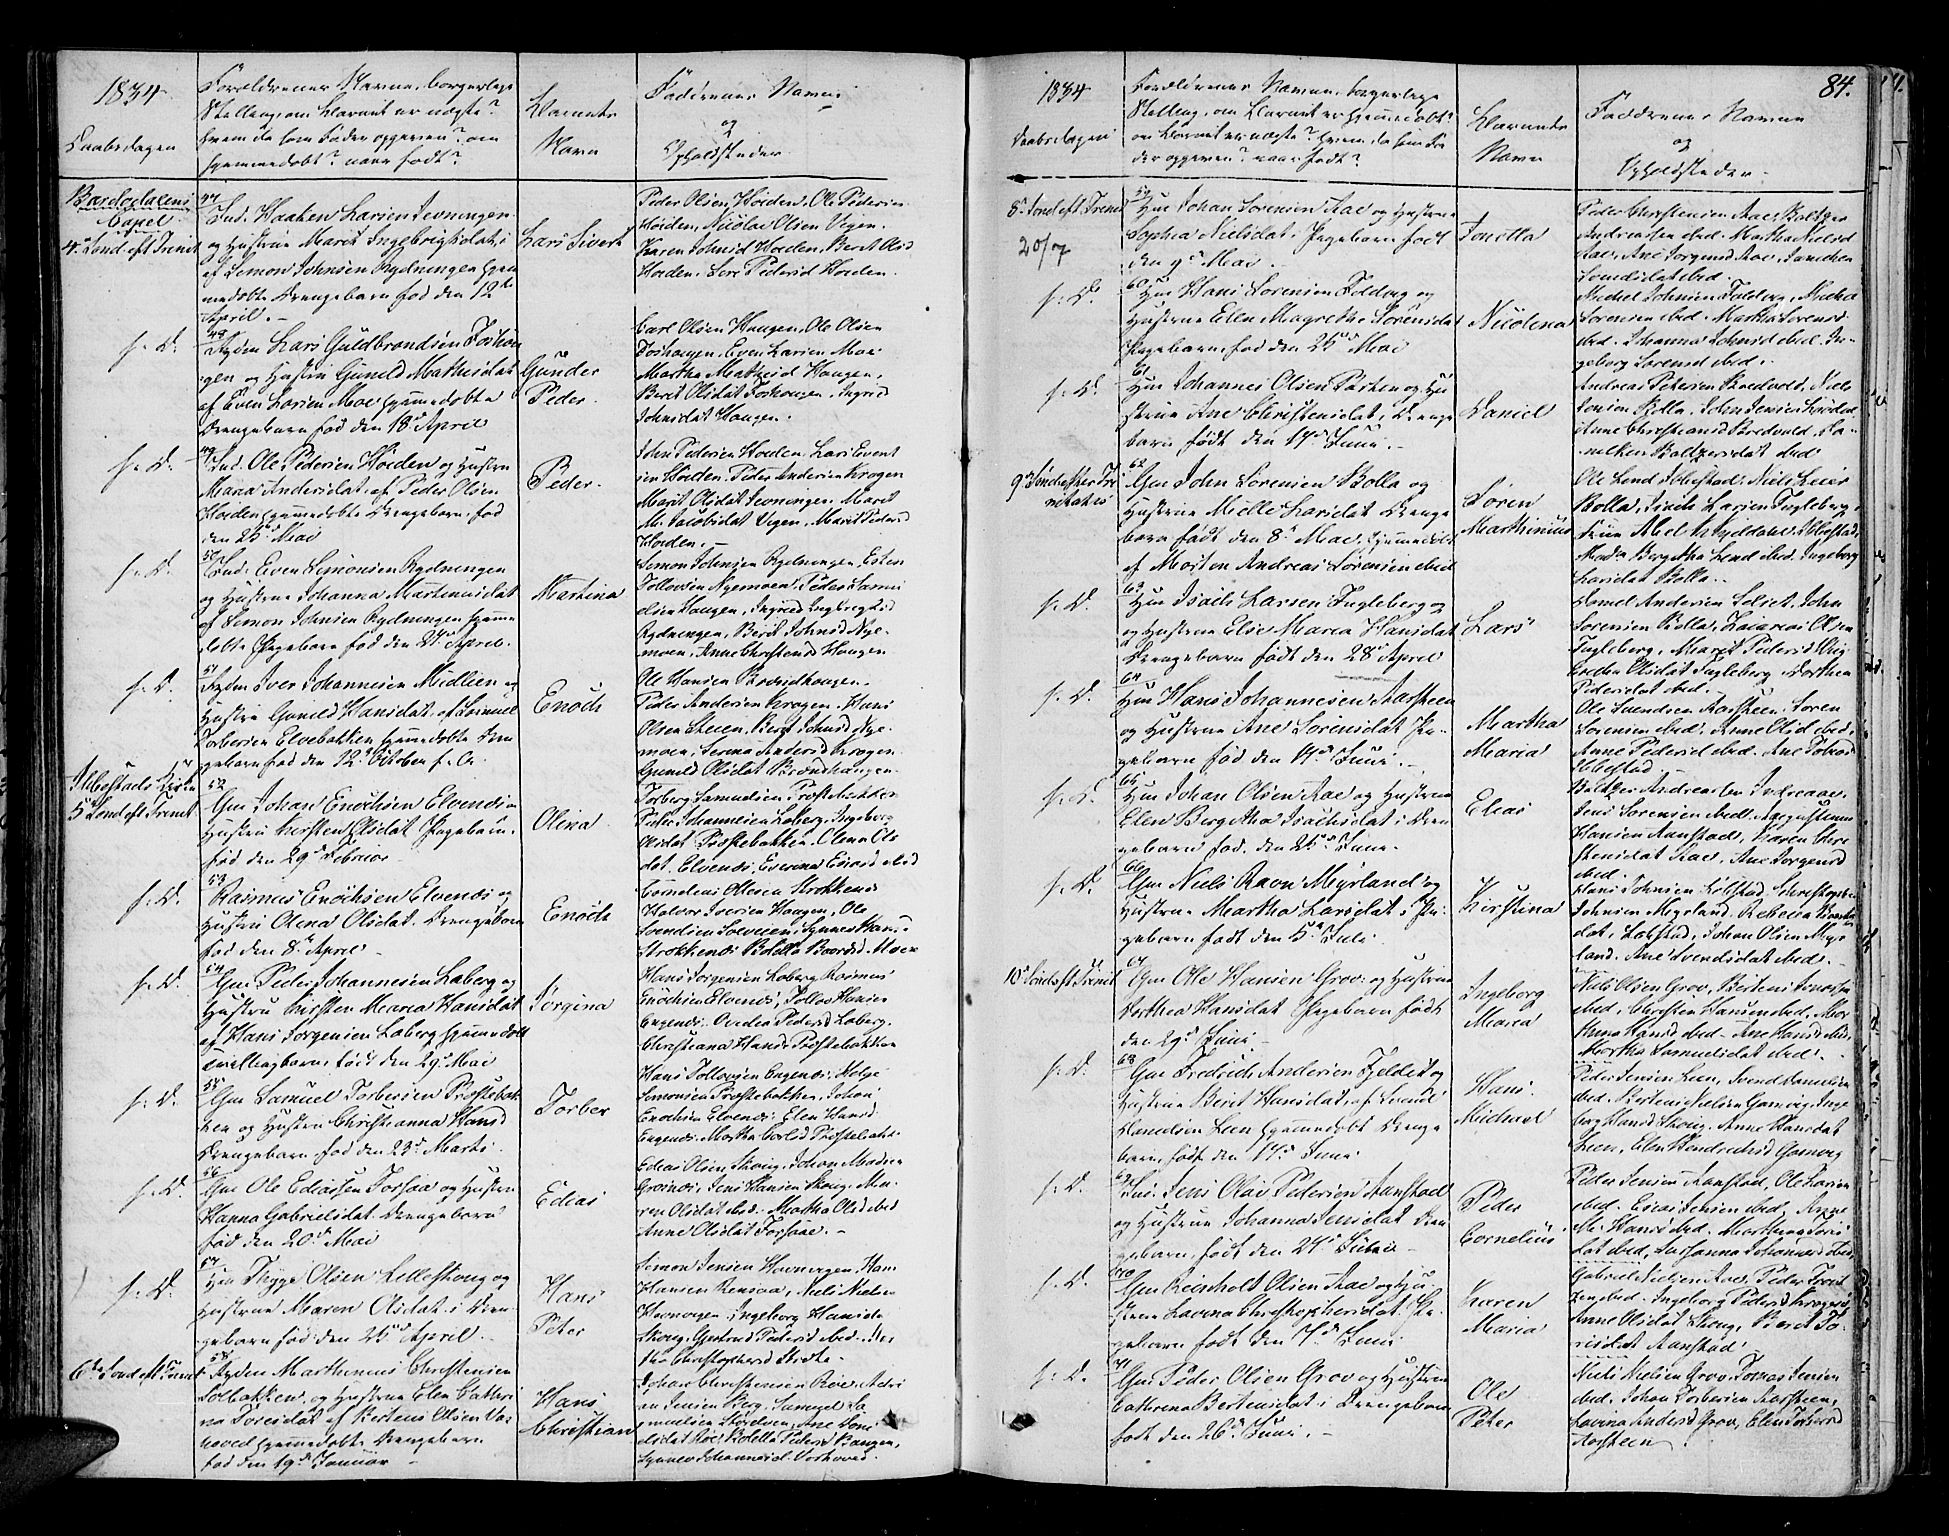 1834
Daabsdagen
Forældrenes Navne, borgerlige
Stilling, om Barnet er uægte?
hvem da som Fader opgiven? om
hjemmedøbt? naar født?
Barnets
Navn
Faddrenes Navne
og
Opholdsteder
Bardodalens
Capel
4. Sond. eft. Trinit
47
Ind. Haaken Larsen Sevningen
og Hustrue Marit Ingebrigtsdat. i
af Simon Johnsen Rydningen hjem
medøbte Drengebarn fød den 12te
April.
Lars Sivert
Peder Olsen Hoiden, Ole Pedersen
Hoiden, Nicolai Olsen Vigen.
Karen Johnsd Hoiden, Berit Olsd
Hoiden
f. D.
48
Lars Guldbrandsen Foshou
gen og Hustru Gunild Mathisdat
af Even Larsen Moe hjemmedøbte
Drengebarn fød den 18d April
Gunder
Peder.
Carl Olsen Haugen, Ole Olsen
Foshougen, Even Larsen Moe
Martha Mathisd Haugen,
Berit Olsdat Foshougen, Ingrid
Johnsdat Haugen.
f. D.
49
Ind. Ole Pedersen Hoiden og Hustru
Maria Andersdat. af Peder Olsen
Hoiden hjemmedøbte Drengebarn, fød
den 25d Mai
Peder.
John Pedersen Hoiden, Lars Event
sen Hoiden, Peder Andersen Krogen
Marit Olsdat Sevningen, Maret
M. Jacobsdat Vigen, Marit Pedersd
Hoiden.
f. D.
50
Ind. Even Simonsen Rydningen
og Hustrue Johanna Martinusdat
af Simon Johnsen Rydningen hjemme
døbte Pigebarn fød den 27d April.
Martina
Simon Johnsen Rydningen, Esten
Tollovsen Nyemoen, Peder Samu
elsen Haugen, Ingrid Ingbrigtsd
Rydningen, Berit Johnsd Nye-
moen, Anne Christensd Haugen
f. D.
51
Iver Johannesen Midlien og
Hustru Gunild Hansdat. af Samuel
Torbersen Elvebakken hjemmedøbte Dren
gebarn fød den 12. October f. A.
Enoch
Ole Hansen
Peder Andersen Krogen, Hans
Olsen Steien, Berit Johnsd Nye-
moen, Serina Andersd Krogen
Gunild Olsdat
Ibbestads Kirke
5. Sond. eft. Trinit
52
Gm Johan Enochsen Elvenes og
Hustru Kirsten Olsdat. Pigebarn.
fød den 29d Februar
Olina
Torberg Samuelsen Præstebakken
Peder Johannesen Loberg, Ingeborg
Olsdat Præstebakken, Olena Ols
dat. Elvenes, Everina Enocsd ibid
f. D.
53
Rasmus Enochsen Elvenes og
Hustru Olena Olsdat. Drengebarn
fød den 8de April
Enoch
Cornelius Olsen Strokkenes
Halvor Iversen Haugen, Ole
Svendsen Solveien, Synnev Hans.
Strokkenes Bolette Baarsd. Moen
f. D.
54
Gm Peder Johannesen Loberg og
Hustru Kirsten Maria Hansdat
af Hans Jorgensen Loberg hjemmedøbt
Tvillingbarn, født den 29d Mai
Jørgina
Hans Jorgensen Loberg, Rasmus
Enochsen Elvenes, Tollov Hansen
Engenes. Ovidia Pedersd Loberg.
Christiana Hansd Præstebakken
f. D.
55
Gm Samuel Torbersen Præstebak
ken og Hustru Christianna Hansd
Drengebarn fød den 23d Marts.
Torber
Hans Tollovsen Engenes, Helge
Simonsen Præstebakken, Johan
Enochsen Elvenes, Elen Hansd
Engenes. Martha Carlsd Præstebakk
f. D.
56
Gm Ole Ediassen Forsaa og Hustru
Hanna Gabrielsdat. Drengebarn
fød den 20d Mai
Edias
Edias Olsen Skoug, Johan Madsen
Grosnes, Jens Hansen Skoug. Ma-
ren Olsdat ibid. Martha Olsd ibid
Anne Olsdat Forsaae.
f. D.
57
Hm Thyge Olsen Lilleskoug og
Hustrue Maren Olsdat. i Dren-
gebarn fød den 25d April.
Hans
Peter
Simon Jensen Havnvigen, Hans
Hansen Rensaa, Niels Nielsen
Havnvigen, Ingeborg Hansd
Skoug, Gertrud Pedersd ibid.
6te Sond. eft. Trinit
58
Marthinus Christensen
Solbakken, og Hustrue Elen Cathri
na Toresdat af Bertens Olsen Vor
hoved hjemmedøbte Drengebarn
fød den 19d Januar
Hans
Christian
Johan Christensen Roe, Adri
an Jensen Berg, Samuel Sa
muelsen
Synnev Johannesd. Vorhoved.
1834
Daabsdagen
Forældrenes Navne, borgerlige
Stilling, om Barnet er hjemmedøbt?
om Barnet er uægte? hvem da som Fa
der opgiven? naar født?
Barnets
Navn
Faddrenes Navne
og
Opholdsteder
84.
8. Sond. eft. Trinit
20/7
59
Hm Johan Sorensen Aae og Hustrue
Sophia Nielsdat. Pigebarn født
den 9d Mai
Jonetta
Peder Christensen Aae, Baltzer
Andreassen ibid. Martha Nielsd
Aae, Ane Jorgensd Aae,
ibid.
f. D.
60
Hm Hans Sorensen Foldvig og
Hustrue Ellen Magrethe Sørensdat
Pigebarn, fød den 25d Mai
Nicolina
Michel Johnsen Foldvig, Michel
Sorensen ibid. Martha Sorensd
ibid. Johanna Johnsd ibid. In-
geborg Sorensd ibid.
f. D.
61
Hm Johannes Olsen og Hu
strue Ane Christensdat. Drenge
barn født den 17d Juni.
Daniel
Andreas Petersen Skredvold, Niels
Jonsen Bolla, John Jensen
Anne Christiansd Bredvold
Baltzersdat ibid
9de Sond. efter Tri
nitatis
62
Gm John Sorensen Bolla og
Hustrue Mille Larsdat Drenge
barn født den 8d Mai, hjemmedøbt
af Morten Andreas Sørensen ibid
Soren
Marthinius
Ole Lind Ibbestad, Niels
Bolla, Isach Larsen Fugleberg,
Fru Abel Ibbestad,
Mad. Bergitha Lind ibid. Ingeborg
Larsdat Bolla.
f. D.
63
Hm Isach Larsen Fugleberg
og Hustrue Elise Maria Hansdat
Drengebarn født den 28d April
Lars
Daniel Andersen Selset, John
Sorensen Bolla, Zacarias Olsen
Fugleberg, Marit Pedersd
Olsdat Fugleberg, Dorthea
Pedersdat ibid.
f. D.
64
Hm Hans Johannesen Aarsteen
og Hustrue Ane Sorensdat Pi-
gebarn fød den 11d Juni.
Martha
Maria
Ole Svendsen Aarsteen, Soren
Sorensen ibid. Anne Olsd ibid.
Anne Pedersd ibid. Ane
Ibbestad
f. D.
65
Hm Johan Olsen Aae og Hustrue
Elen Bergitha Isachsdat i Dren
gebarn fød. den 25d Juni.
Elias
Baltzer Andreassen Indreaae,
Jens Sorensen ibid. Augustinus
Hansen Aanstad, Karen Chri
stensdat Aae, Ane Jorgensd
ibid.
f. D.
66
Gm Niels Ravn Myrland og
Hustrue Martha Larsdat i Pi-
gebarn født den 5d Juli.
Kirstina
Hans Johnsen Løkstad, Christopher
Johnsen Myrland, Rebecca
dat. Løkstad, Johan Olsen Myr
land. Ane Svendsdat ibid.
10. Sond. eft. Trinit
67
Gm Ole Hansen Grov. og Hustrue
Dorthea Hansdat Pigebarn født
den 29d Juni
Ingeborg
Maria
Niels Olsen Grov, Bertens
ibid, Christen Hansen ibid, Mar
Hansd ibid. Ane Hansd ibid,
Martha Samuelsdat ibid.
f. D.
68
Gm Fredrich Andersen Fjeldet og
Hustrue Berit Hansdat, af Svend
Danielsen Leen hjemmedøbt Drenge
barn, født den 17d Juni
Hans
Michael
Peder Jensen Leen, Svend Danielsen
ibid. Bertens Nielsen Gamvig, Inge
borg Hansd Skoug. Anne Hansdat
Leen, Elen Hendrichsd Gamvig
f. D.
69
Ind. Jens Olai Pedersen Aanstad
og Hustrue Johanna Jensdat Dren
gebarn, født den 24d
Peder
Cornelius
Peder Jensen Aanstad, Ole Larsen
ibid. Esaias Jensen ibid, Anne
M. Hansd ibid.
dat ibid, Susanna
f. D.
70
Gm Reinholt Olsen Aae og Hu
strue Lavina Christophersdat. Pi-
gebarn født den 7d Juni
Karen
Maria
Gabriel Nielsen Aae, Peder
ibid. Ingeborg Pedersd
Anne Olsdat Skoug, Berit To-
resdat Aanstad
f. D.
71
Gm Peder Olsen Grov og Hustrue
Cathrina Bertensdat i Drengebarn
født den 26d Juni.
Ole
Peter
Niels Nielsen Grov, Tomas Jensen
ibid, Johan Torbersen Aarsteen,
Lavina Andersd Grov, Elen Torbersd
Aarsteen.